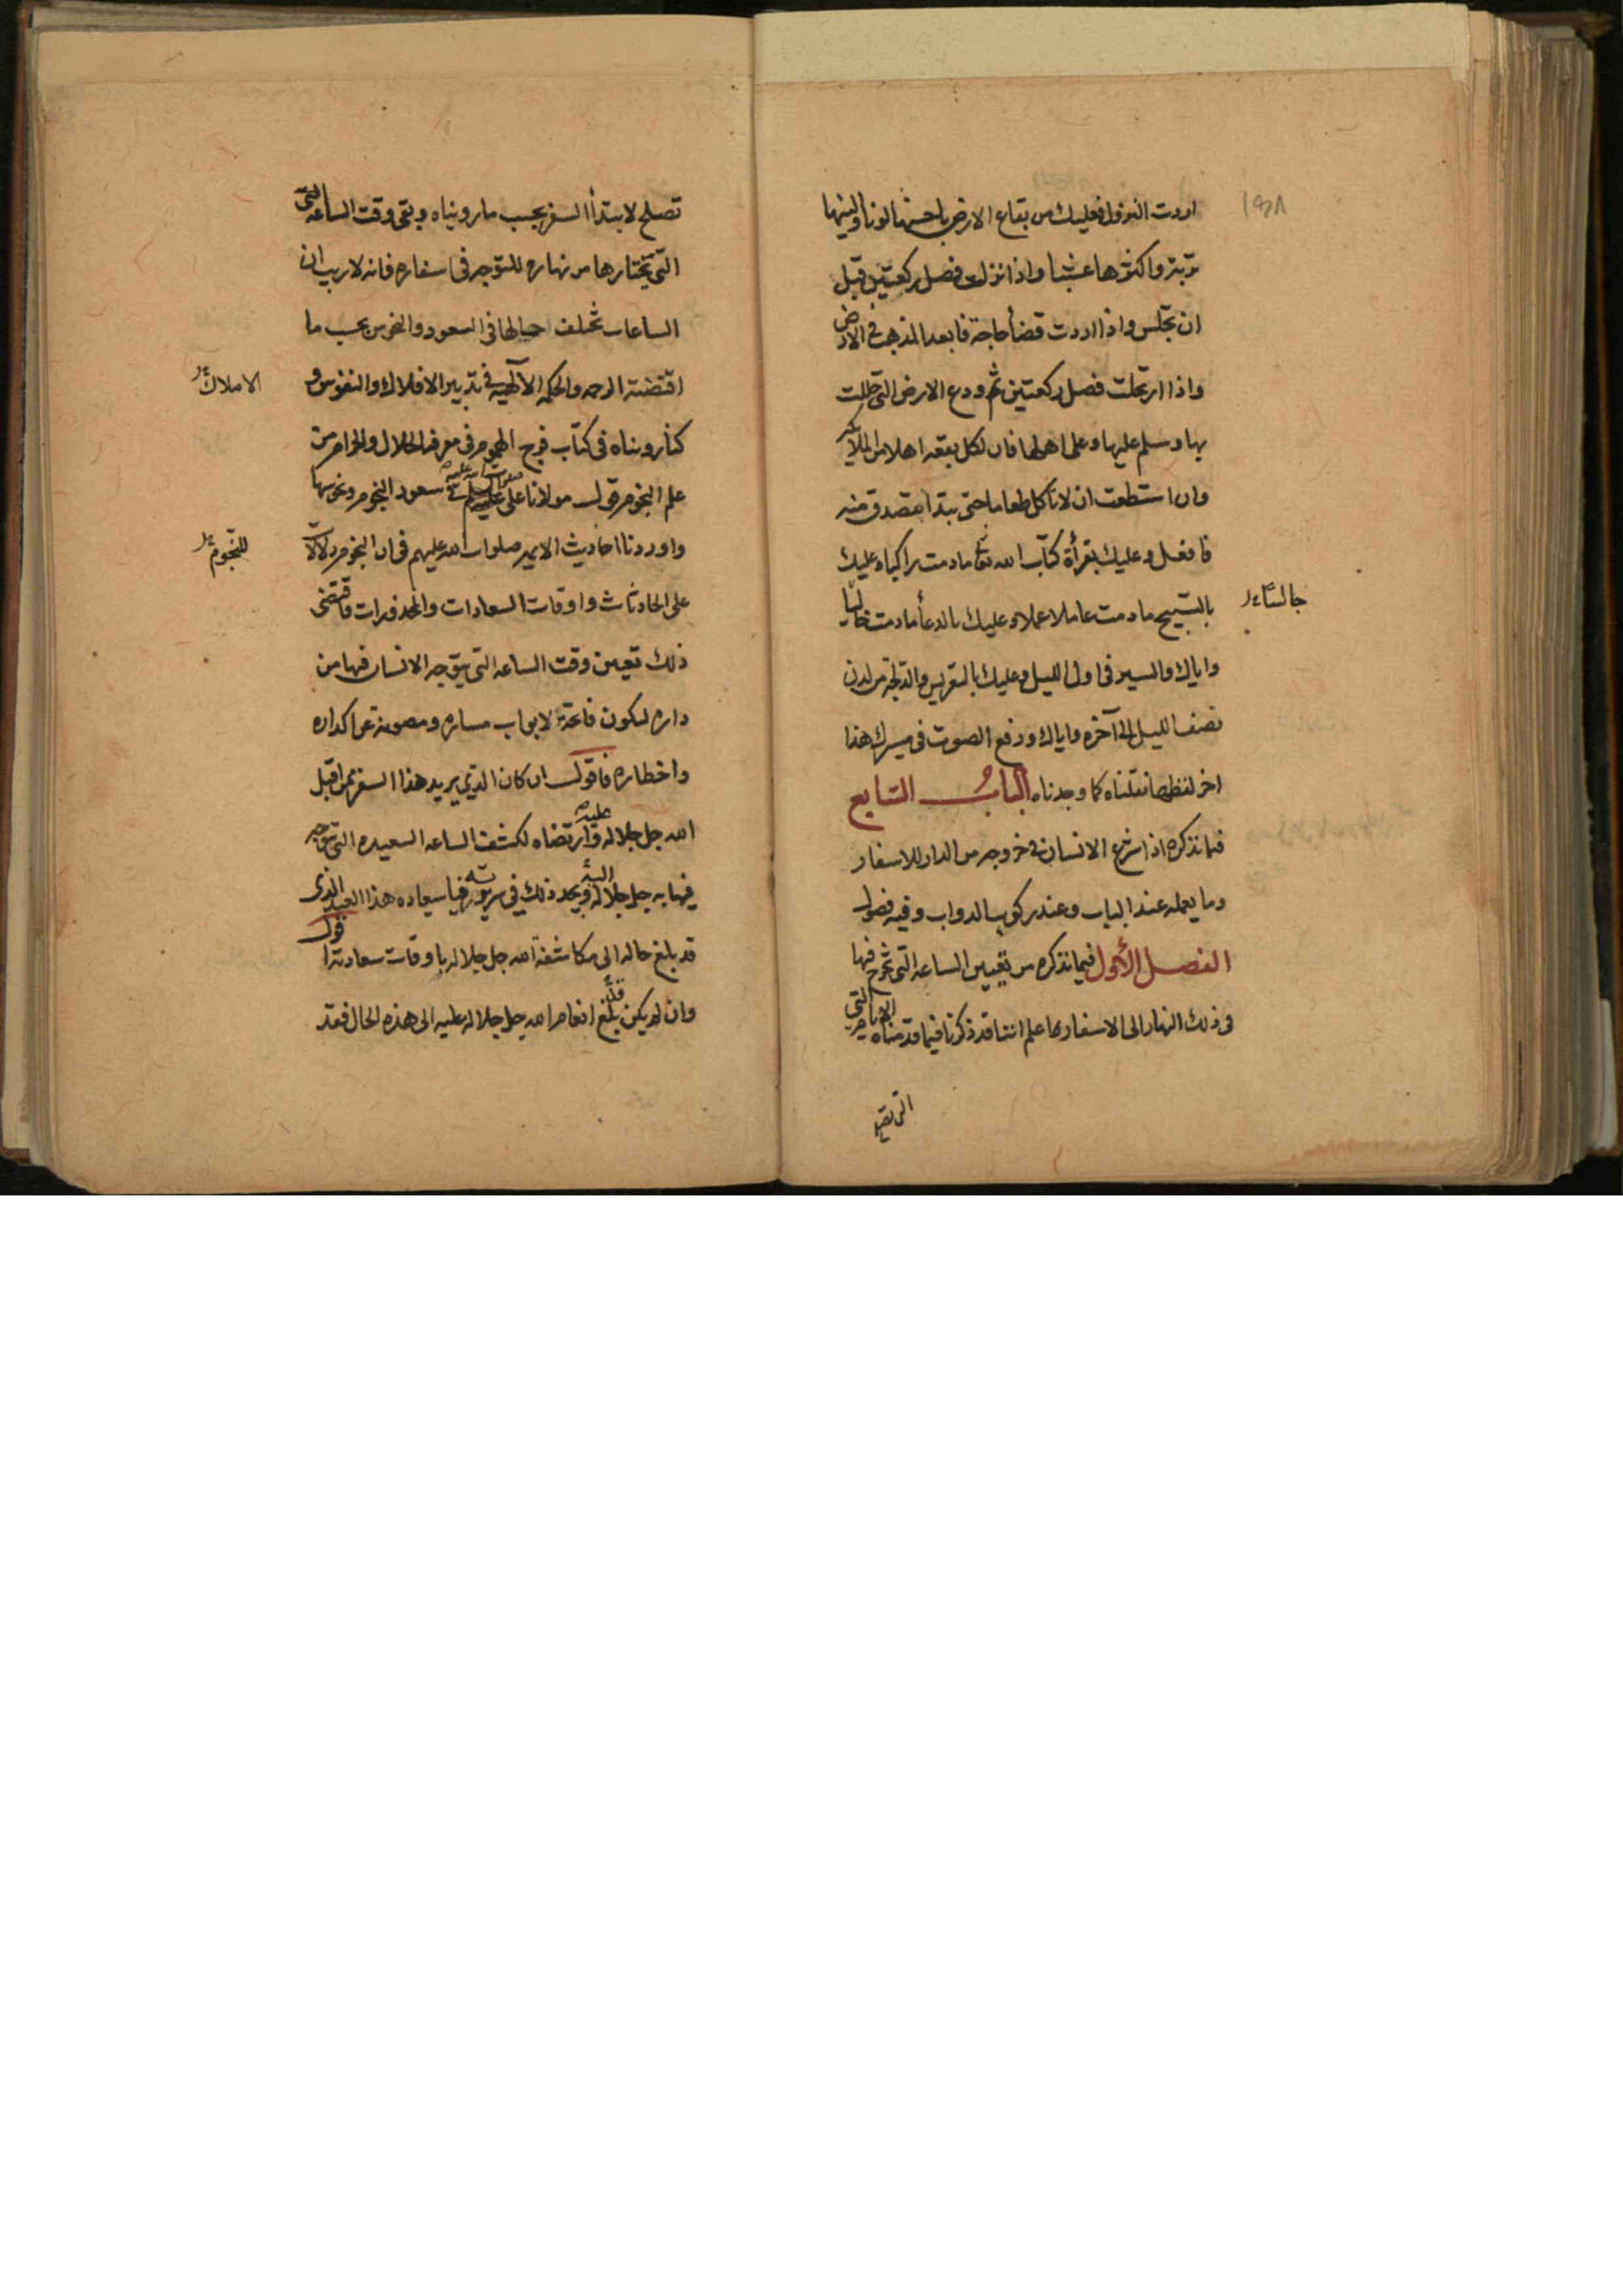 اردت النزول فعليك من بقاع الارض باحسنها لونا والينها
تربة واكثرها عشبا واذا نزلت فصل ركعتين قبل
ان تجلس واذا اردت قضأ حاجة فابعد المذهب في الارض
واذا ارتحلت فصل ركعتين ثم ودع الارض التي حللت
بها وسلم عليها وعلى اهلها فان لكل بقعه اهلا من الملائكة
وان استطعت ان لا تاكل طعاما حتى تبتدأ فتصدق منه
فافعل وعليك بقرأة كتاب الله تعا مادمت راكبا وعليك
بالتسبيح مادمت عاملا عملا وعليك بالدعأ مادمت خاليا
جالسا
واياك والسير في اول الليل وعليك بالتعريس والدلجة من لدن
نصف الليل الى آخره واياك ورفع الصوت في مسيرك هذا
اخر لفظهما نقلناه كما وجدناه الباب السابع
فيما نذكره اذا شرع الانسان في خروجه من الدار للاسفار
وما يعمله عند الباب وعند ركوب الدواب وفيه فصول
الفصل الأول فيما نذكره من تعيين الساعه التي يخرج فيها
في ذلك النهار الى الاسفار اعلم اننا قد ذكرنا فيما قدمناه الايام التي
تصلح لابتدأ السفر بحسب مارويناه وبقى وقت الساعه التي
التي يختارها من نهاره للتوجه في اسفاره فانه لاريب ان
الساعات تختلف حالها في السعود والنحوس بحسب ما
اقتضته الرحمه والحكمه الآلهيه في تدبير الافلاك والنفوس و
الاملاك
كنا رويناه في كتاب فرج المهموم في معرفة الحلال والحرام من
علم النجوم قول مولانا على عليه السلم في سعود النجوم ونحوسها
واوردنا احاديث الائمه صلوات الله عليهم في ان النجوم دلالات
للنجوم
على الحادثات واوقات السعادات والمحذورات فاقتضى
ذلك تعيين وقت الساعه التي يتوجه الانسان فيها من
داره لتكون فاتحة لابواب مساره ومصونة عن اكداره
واخطاره فاقول ان كان الذي يريد هذا السفر ممن اقبل
الله جل جلاله عليه وارتضاه لكشف الساعه السعيده التي يتوجه
فيها به جل جلاله اليه ويجد ذلك في سريرته فيا سعاده هذا العبد الذى
قد بلغ حاله الى مكاشفة الله جل جلاله باوقات سعادته اقول
وان لم يكن قد بلغ انعام الله جل جلاله عليه الى هذه الحال فقد